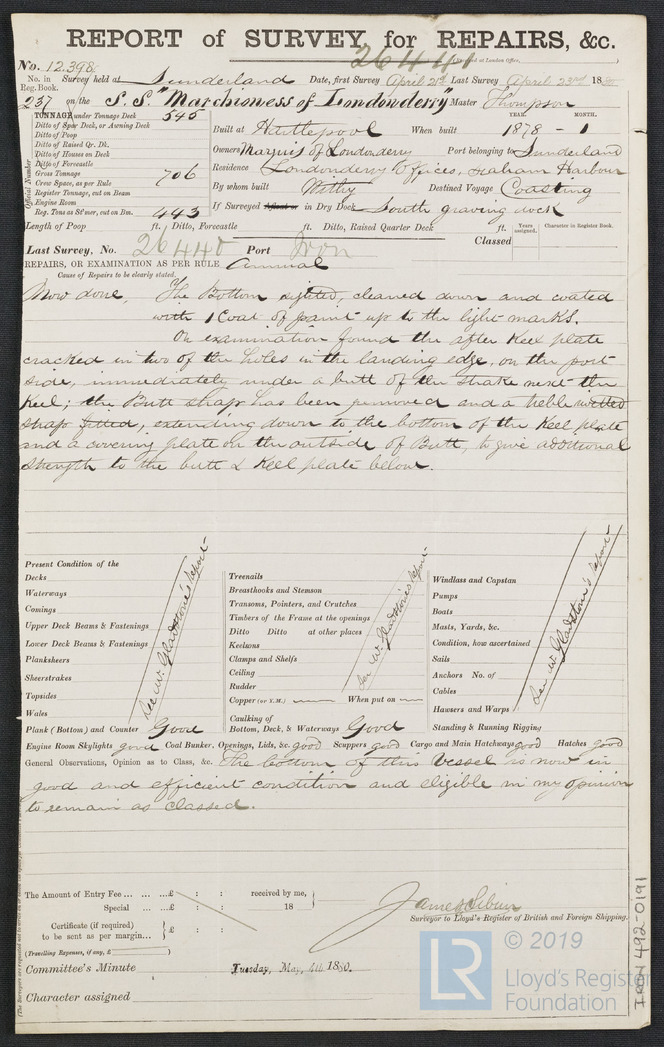 REPORT of SURVEY for REPAIRS, &c.
26441
No. 12,398
No. in Reg. Book. Survey held at Sunderland Date, first Survey April 21st Last Survey April 23rd 1880
237 on the S.S. "Marchioness of Londonderry" Master Thompson
TONNAGE under Tonnage Deck 545
Ditto of Spar Deck, or Awning Deck
Ditto of Poop
Ditto of Raised Qr. Dk.
Ditto of Houses on Deck
Ditto of Forecastle
Gross Tonnage 706
Crew Space, as per Rule
Register Tonnage, cut on Beam
Engine Room
Reg. Tons as St'mer, cut on Bm. 443
Official Number
YEAR. MONTH.
Built at Hartlepool When built 1878 - 1
Owners Marquis of Londonderry Port belonging to Sunderland
Residence Londonderry Offices, Seaham Harbour
By whom built Withy Destined Voyage Coasting
If Surveyed Afloat or in Dry Dock South graving dock
Length of Poop ft. Ditto, Forecastle ft. Ditto, Raised Quarter Deck ft.
Years assigned. Character in Register Book.
Last Survey, No. 26440 Port Iron Classed
REPAIRS, OR EXAMINATION AS PER RULE Annual
Cause of Repairs to be clearly stated.
Now done, The Bottom sighted, cleaned down and coated
with 1 Coat of paint up to the light marks.
On examination found the after Keel plate
cracked in two of the holes in the landing edge, on the port
side, immediately under a butt of the strake next the
Keel; the Butt strap has been removed and a treble rivetted
strap fitted, extending down to the bottom of the Keel plate
and a covering plate on the outside of Butt, to give additional
strength to the butt & Keel plate below.
Present Condition of the
Decks
Waterways
Comings
Upper Deck Beams & Fastenings
Lower Deck Beams & Fastenings
Planksheers
Sheerstrakes
Topsides
Wales
Plank (Bottom) and Counter Good
See W. Gladstone's report
Treenails
Breasthooks and Stemson
Transoms, Pointers, and Crutches
Timbers of the Frame at the openings
Ditto Ditto at other places
Keelsons
Clamps and Shelfs
Ceiling
Rudder
Copper (or Y.M.) When put on
Caulking of
Bottom, Deck, & Waterways Good
See W. Gladstone's report
Windlass and Capstan
Pumps
Boats
Masts, Yards, &c.
Condition, how ascertained
Sails
Anchors No. of
Cables
Hawsers and Warps
Standing & Running Rigging
See W. Gladstone's report
Engine Room Skylights good Coal Bunker, Openings, Lids, &c. good Scuppers good Cargo and Main Hatchways good Hatches good
General Observations, Opinion as to Class, &c. The bottom of this Vessel is now in
good and efficient condition and eligible in my opinion
to remain as classed.
The Amount of Entry Fee ... ... ...£ : : received by me,
Special ... ...£ : : 18
Certificate (if required) to be sent as per margin... £ : :
(Travelling Expenses, if any, £ )
Surveyor to Lloyd's Register of British and Foreign Shipping.
Committee's Minute Tuesday, May, 4th 1880.
Character assigned
IRON 492-0191
LR © 2019
Lloyd's Register
Foundation